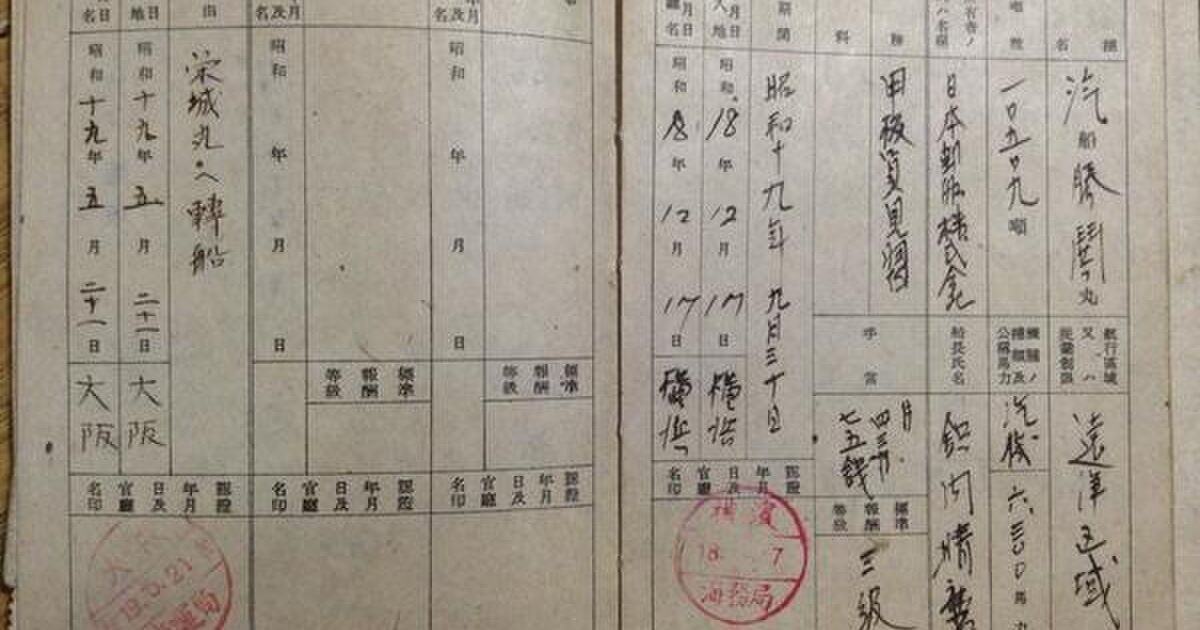 船名
汽船勝鬨丸
航行区域又ハ従業制限
遠洋区域
一〇九〇九噸
機関ノ種類及公称馬力
汽機
六三〇馬力
船長氏名
甲板員見習
手当
月四三
七五銭
標準報酬等級
三級
期間
昭和十九年九月三十日
昭和18年12月17日
横浜
昭和18年12月17日
横浜
認證年月日及官廳名印
横濱
18. 7
海務局
昭和 年 月 日
標準報酬等級
認證年月日及官廳名印
昭和 年 月 日
標準報酬等級
認證年月日及官廳名印
由
栄城丸へ轉船
昭和十九年五月二十一日
大阪
昭和十九年五月二十一日
大阪
認證年月日及官廳名印
19.5.21